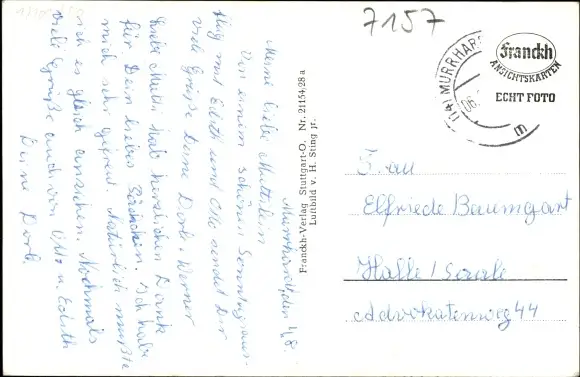 7157
Franckh
ANSICHTSKARTEN
ECHT FOTO
(14) MURRHAR
06.
Frau
Elfriede Baumgart
Halle / Saale
Advokatenweg 44
Franckh-Verlag Stuttgart-O. Nr. 21154/28 a
Luftbild v. H. Sting jr.
Murrhardt, den 4,8
Meine liebe Mutti!
Von einem schönen Sonntagsaus-
flug mit Edith und Otto sendet Dir
viele Grüße Deine Dorle, Werner
Liebe Mutti, hab herzlichen Dank
für Dein liebes Päckchen. Ich habe
mich sehr gefreut. Natürlich mußte
ich es gleich anziehen. Nochmals
viele Grüße auch von Otto u. Edith
Deine Dorle